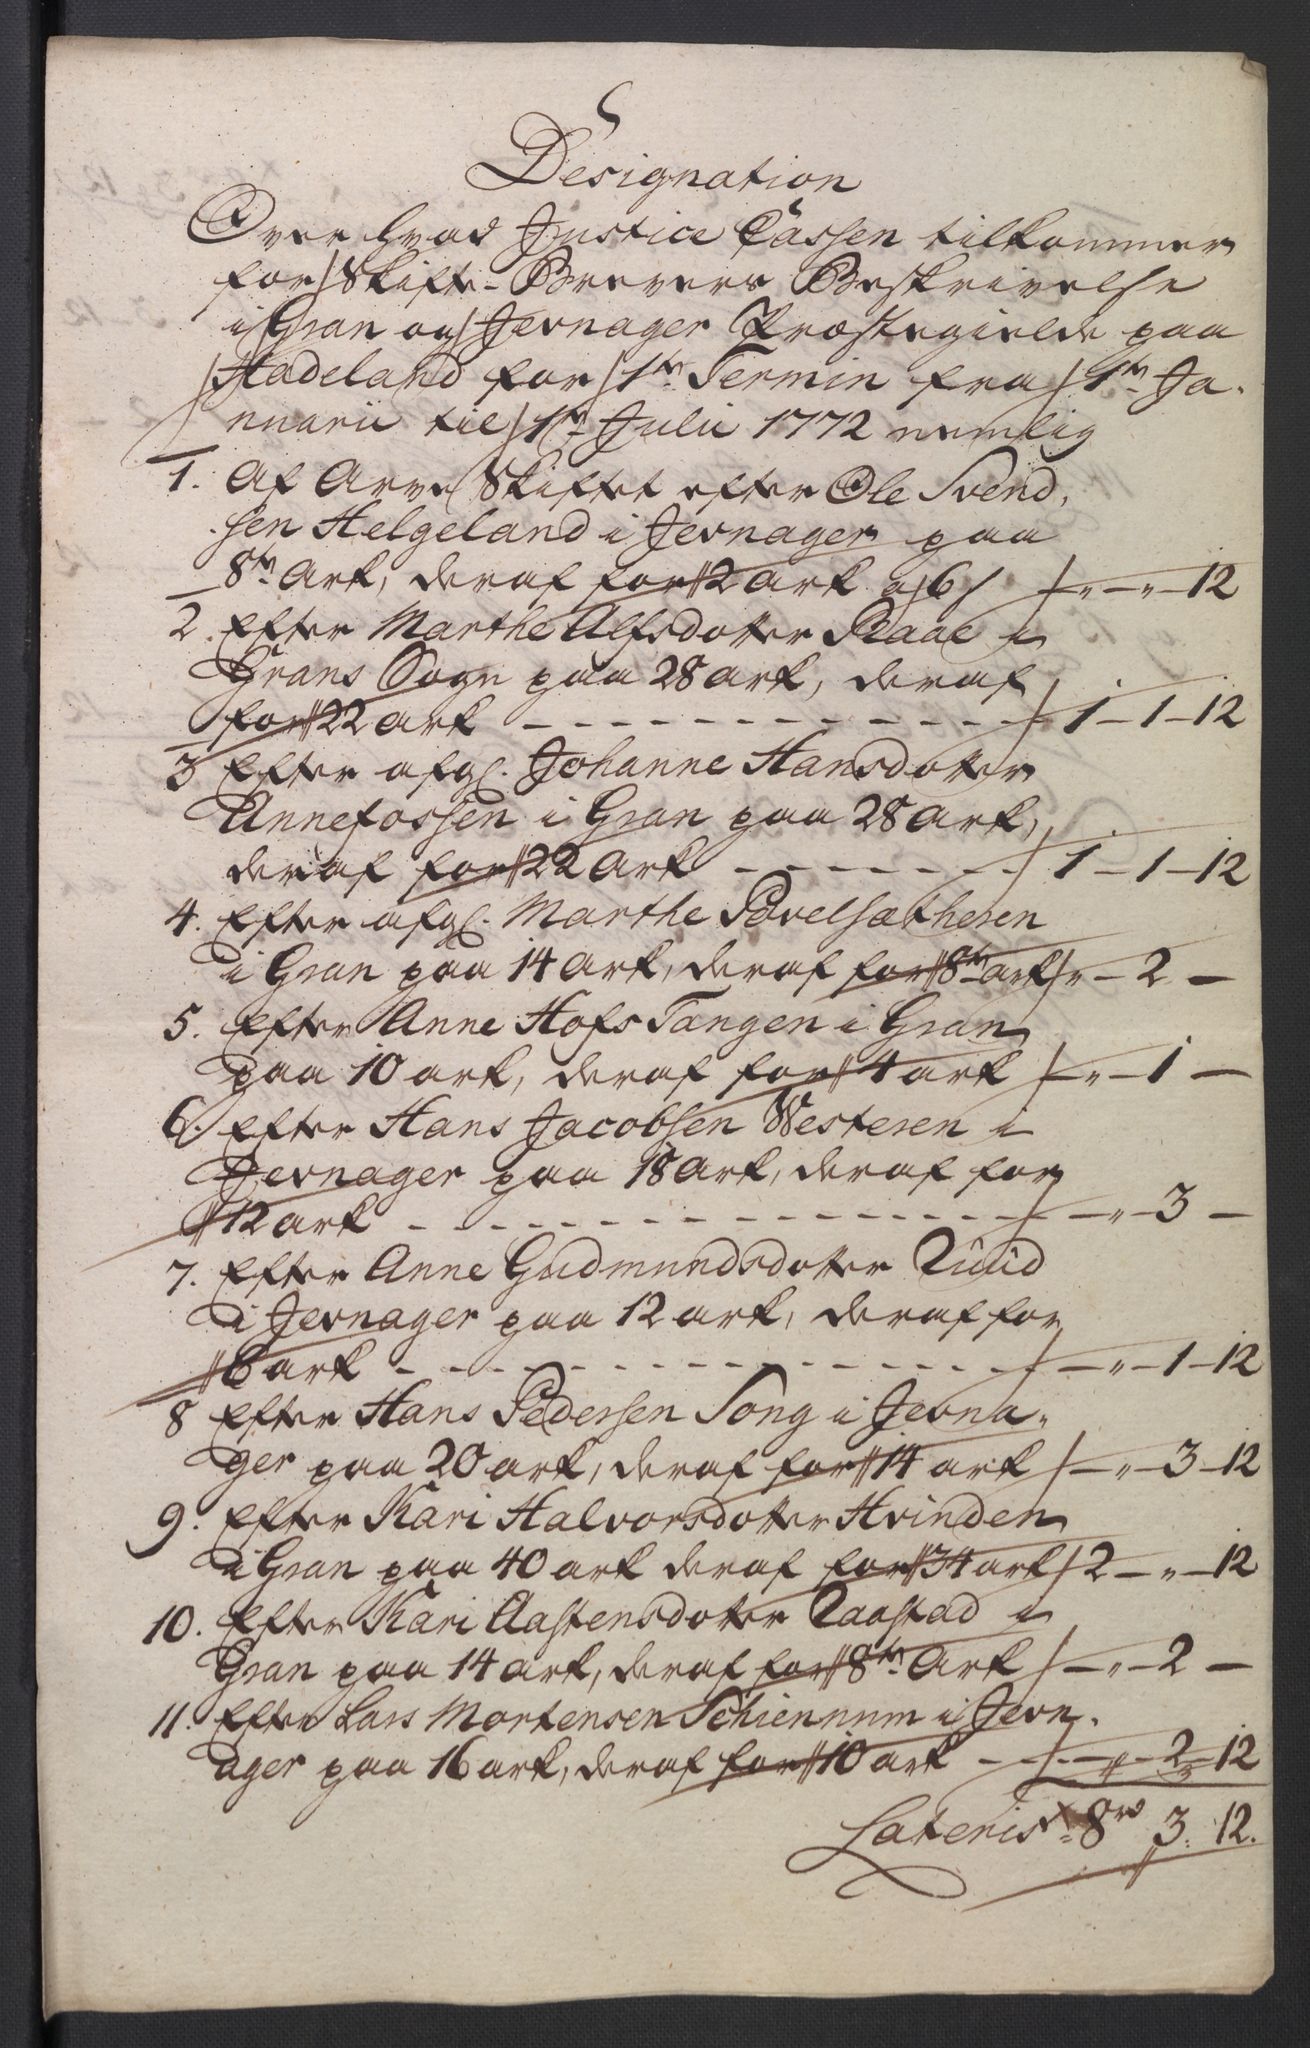 Designation
Over hvad Justice Cassen tilkommer
for Skifte-Brevers Beskrivelse
i Gran og Jevnager Præstegielde paa
Hadeland for 1ste Termin fra 1ste Ja-
nuarii til 1ste Julii 1772 nemlig
1. Af Arve Skiftet efter Ole Svend-
sen Helgeland i Jevnager paa
8te Ark, deraf for 2 Ark a 6 s — " — " — 12
2. Efter Marthe Alfsdotter Raae i
Grans Sogn paa 28 Ark, deraf
for 22 Ark - - - - 1 - 1 - 12
3 Efter afgl. Johanne Hansdotter
Annefossen i Gran paa 28 Ark,
deraf for 22 Ark - - - - 1 - 1 - 12
4. Efter afgl. Marthe Povelsætheren
i Gran paa 14 Ark, deraf for 8te ark " - 2 -
5. Efter Anne Hofs Tangen i Gran
paa 10 ark, deraf for 4 ark — " - 1 -
6. Efter Hans Jacobsen Westeren i
Jevnager paa 18 Ark, deraf for
12 ark - - - - " - 3 -
7. Efter Anne Gudmundsdotter Ruud
i Jevnager paa 12 ark, deraf for
6 ark - - - - " - 1 - 12
8 Efter Hans Pedersen Song i Jevna-
ger paa 20 ark, deraf for 14 ark — " - 3 - 12
9. Efter Kari Halvorsdotter Hvinden
i Gran paa 40 ark deraf for 34 ark 2 - " - 12
10. Efter Kari Aastensdotter Raastad i
Gran paa 14 ark, deraf for 8te Ark — " - 2 -
11. Efter Lars Mortensen Schiennum i Jevn-
ager paa 16 ark, deraf for 10 ark - - " - 2 - 12
Lateris 8 rd 3. 12.